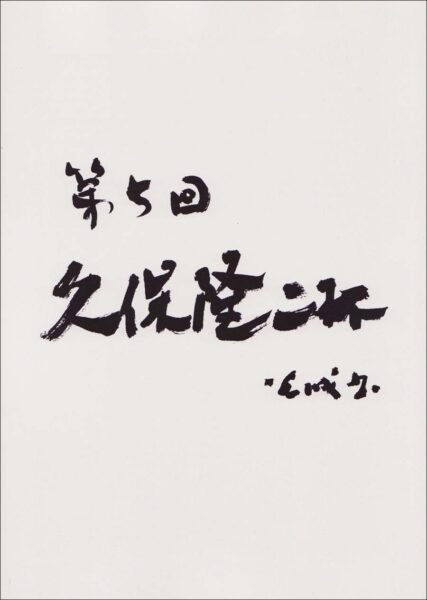 第5回
久保隆二杯